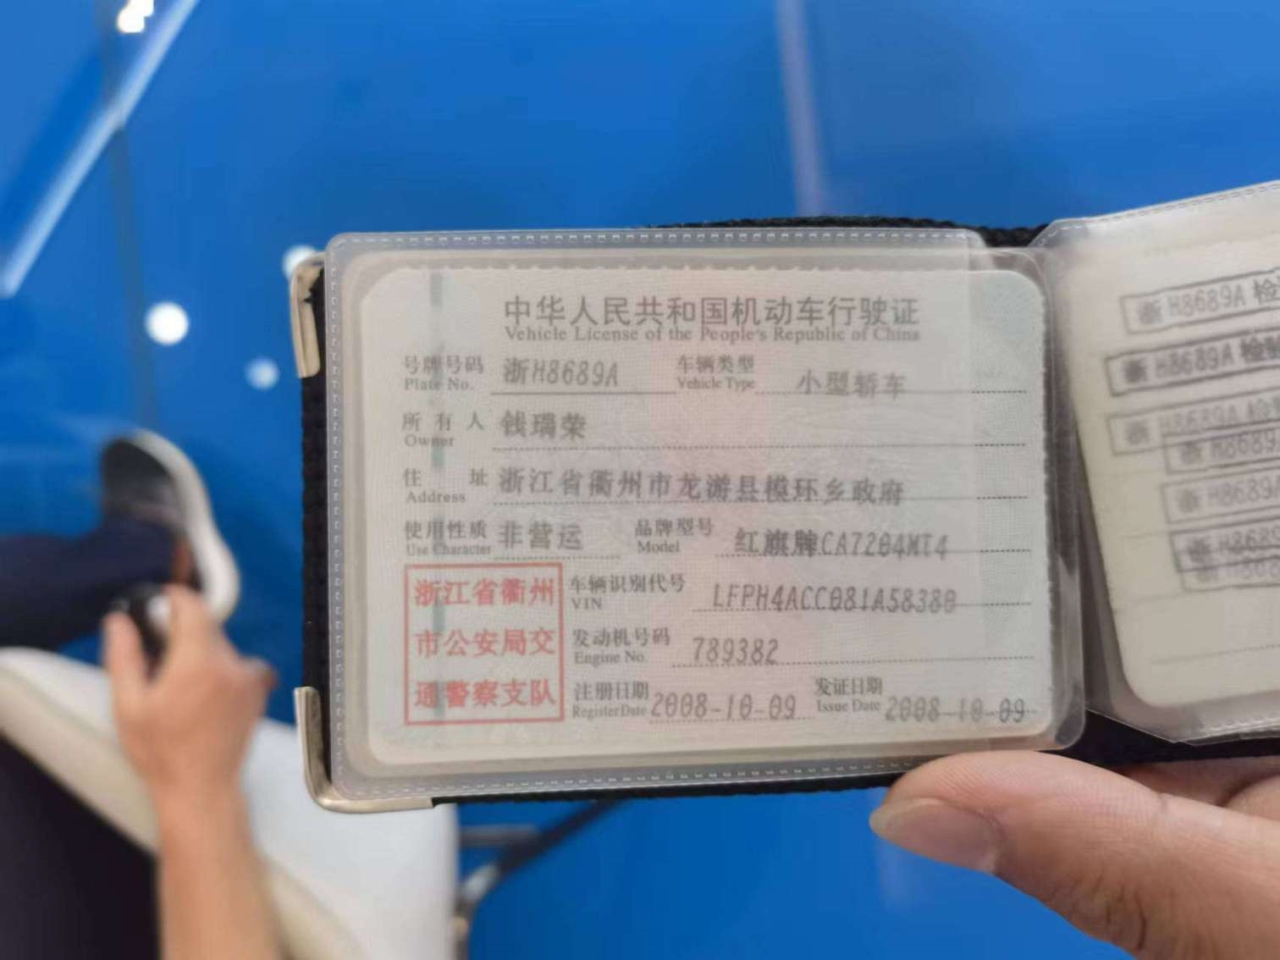 中华人民共和国机动车行驶证
Vehicle License of the People's Republic of China
号牌号码 浙H8689A 车辆类型 小型轿车
Plate No. Vehicle Type
所有人 钱瑞荣
Owner
住址 浙江省衢州市龙游县模环乡政府
Address
使用性质 非营运 品牌型号 红旗牌CA7204MT4
Use Character Model
浙江省衢州
市公安局交
通警察支队
车辆识别代号 LFPH4ACC081A58380
VIN
发动机号码 789382
Engine No.
注册日期 2008-10-09 发证日期 2008-10-09
Register Date Issue Date
浙H8689A 检
浙H8689A 检验
浙H8689A 检
浙H8689
浙H8689A
浙H8689